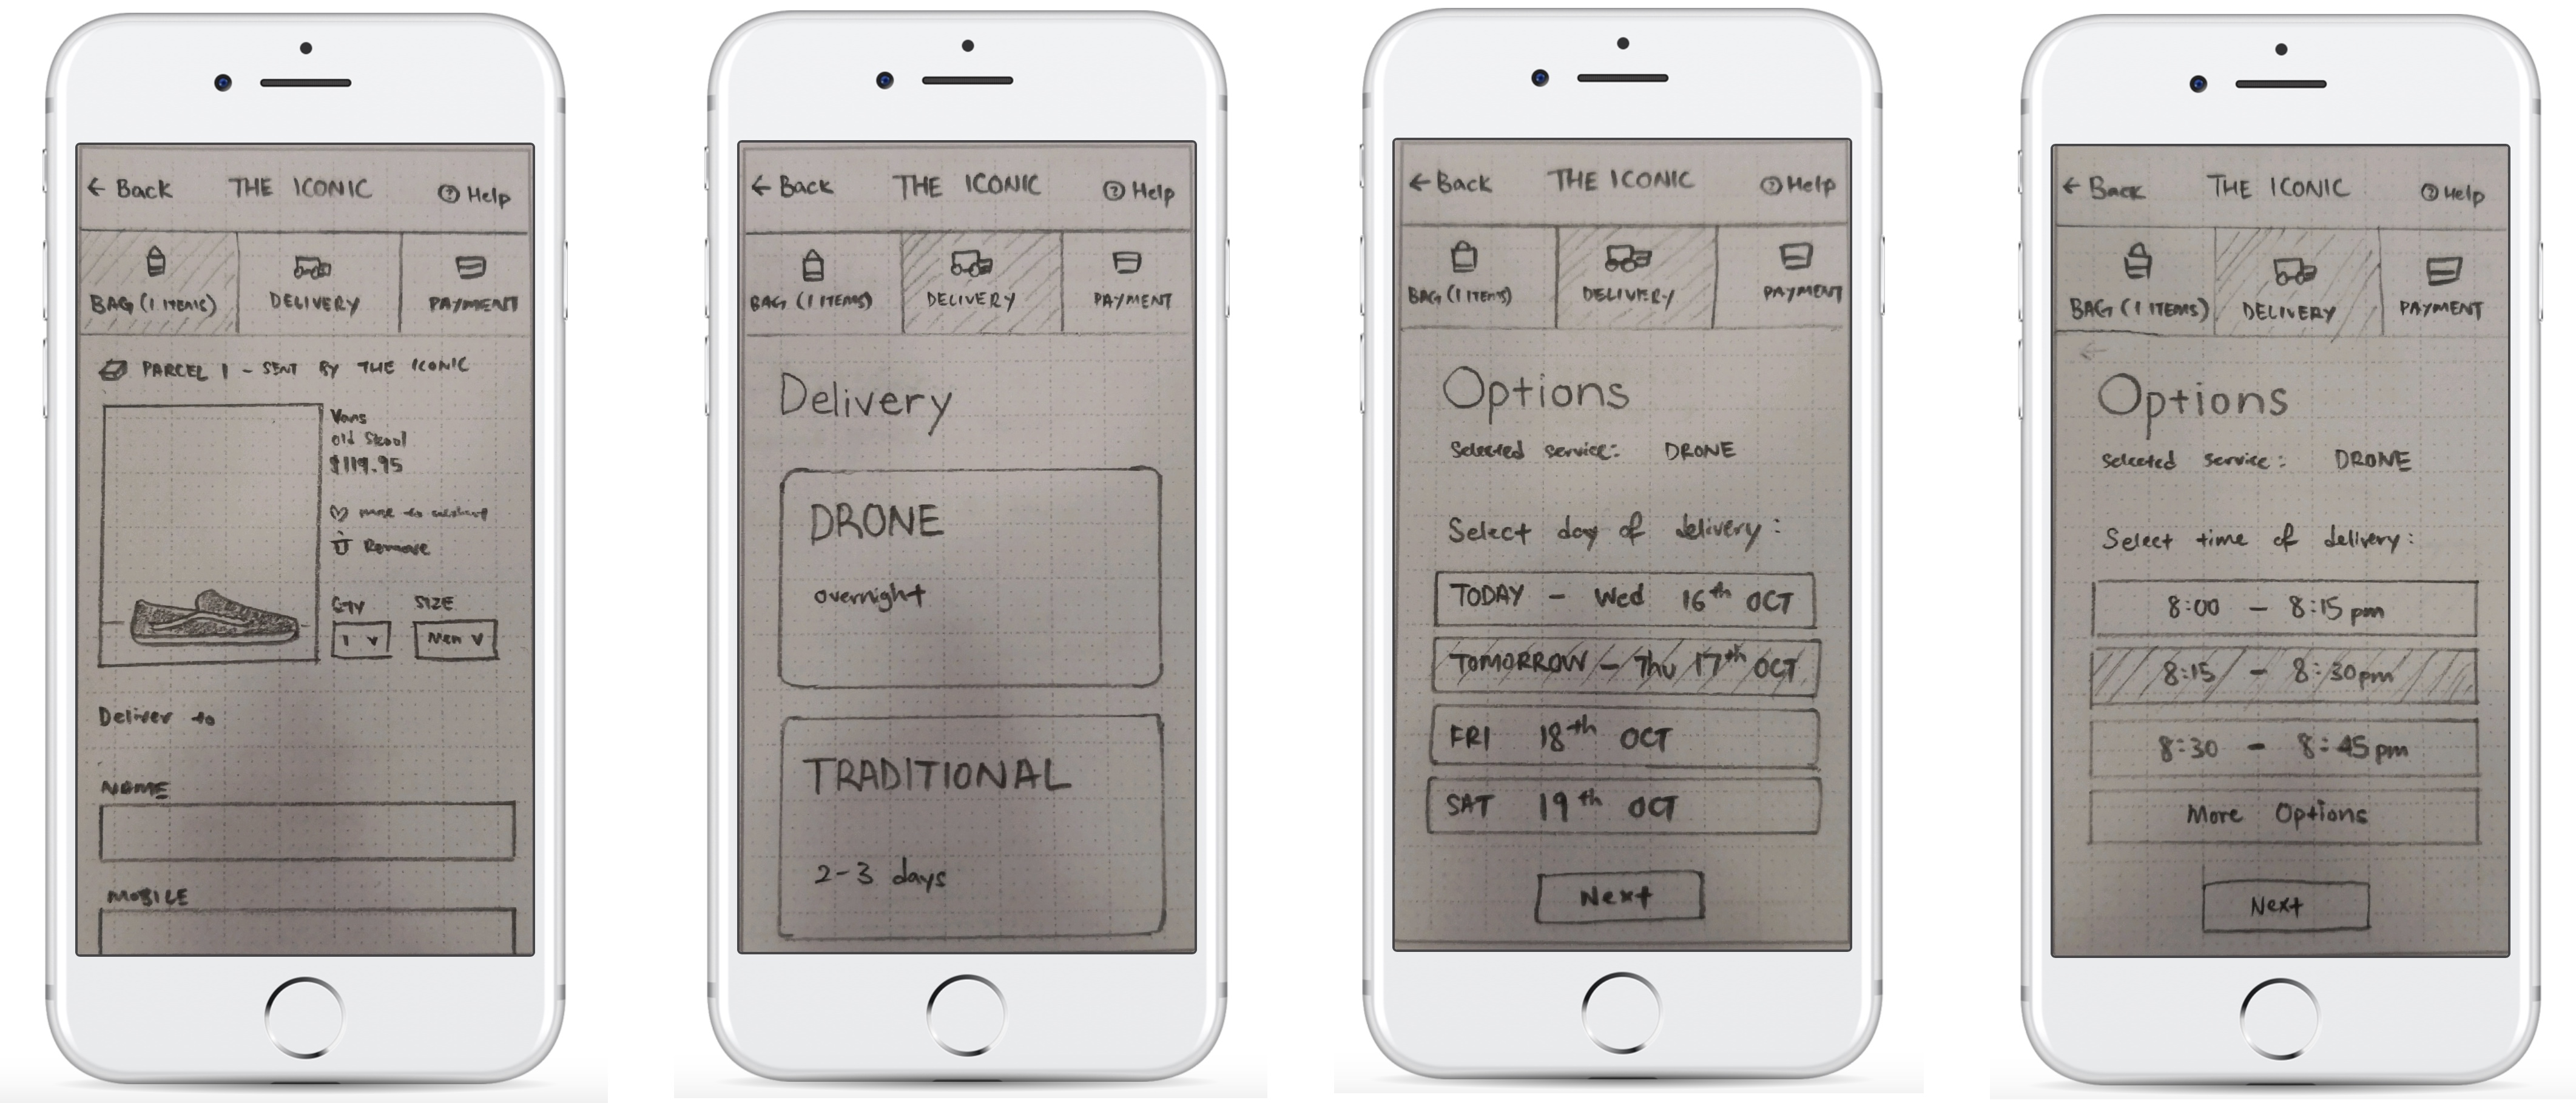 ← Back THE ICONIC ? Help
BAG (1 ITEMS) DELIVERY PAYMENT
PARCEL 1 - SENT BY THE ICONIC
Vans
Old Skool
$119.95
move to wishlist
Remove
QTY SIZE
1 v Men v
Deliver to
NAME
MOBILE
← Back THE ICONIC ? Help
BAG (1 ITEMS) DELIVERY PAYMENT
Delivery
DRONE
overnight
TRADITIONAL
2-3 days
← Back THE ICONIC ? Help
BAG (1 ITEMS) DELIVERY PAYMENT
Options
Selected service: DRONE
Select day of delivery:
TODAY - Wed 16th OCT
TOMORROW - Thu 17th OCT
FRI 18th OCT
SAT 19th OCT
Next
← Back THE ICONIC ? Help
BAG (1 ITEMS) DELIVERY PAYMENT
←
Options
Selected service: DRONE
Select time of delivery:
8:00 - 8:15 pm
8:15 - 8:30pm
8:30 - 8:45pm
More Options
Next